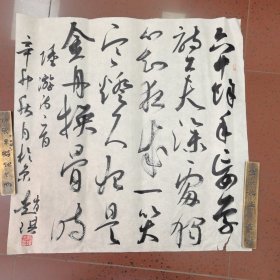 六十餘年妄學
詩工夫深處獨
心知夜來一笑
寒燈下始是
金丹換骨時
陸游詩一首
辛卯秋月於京